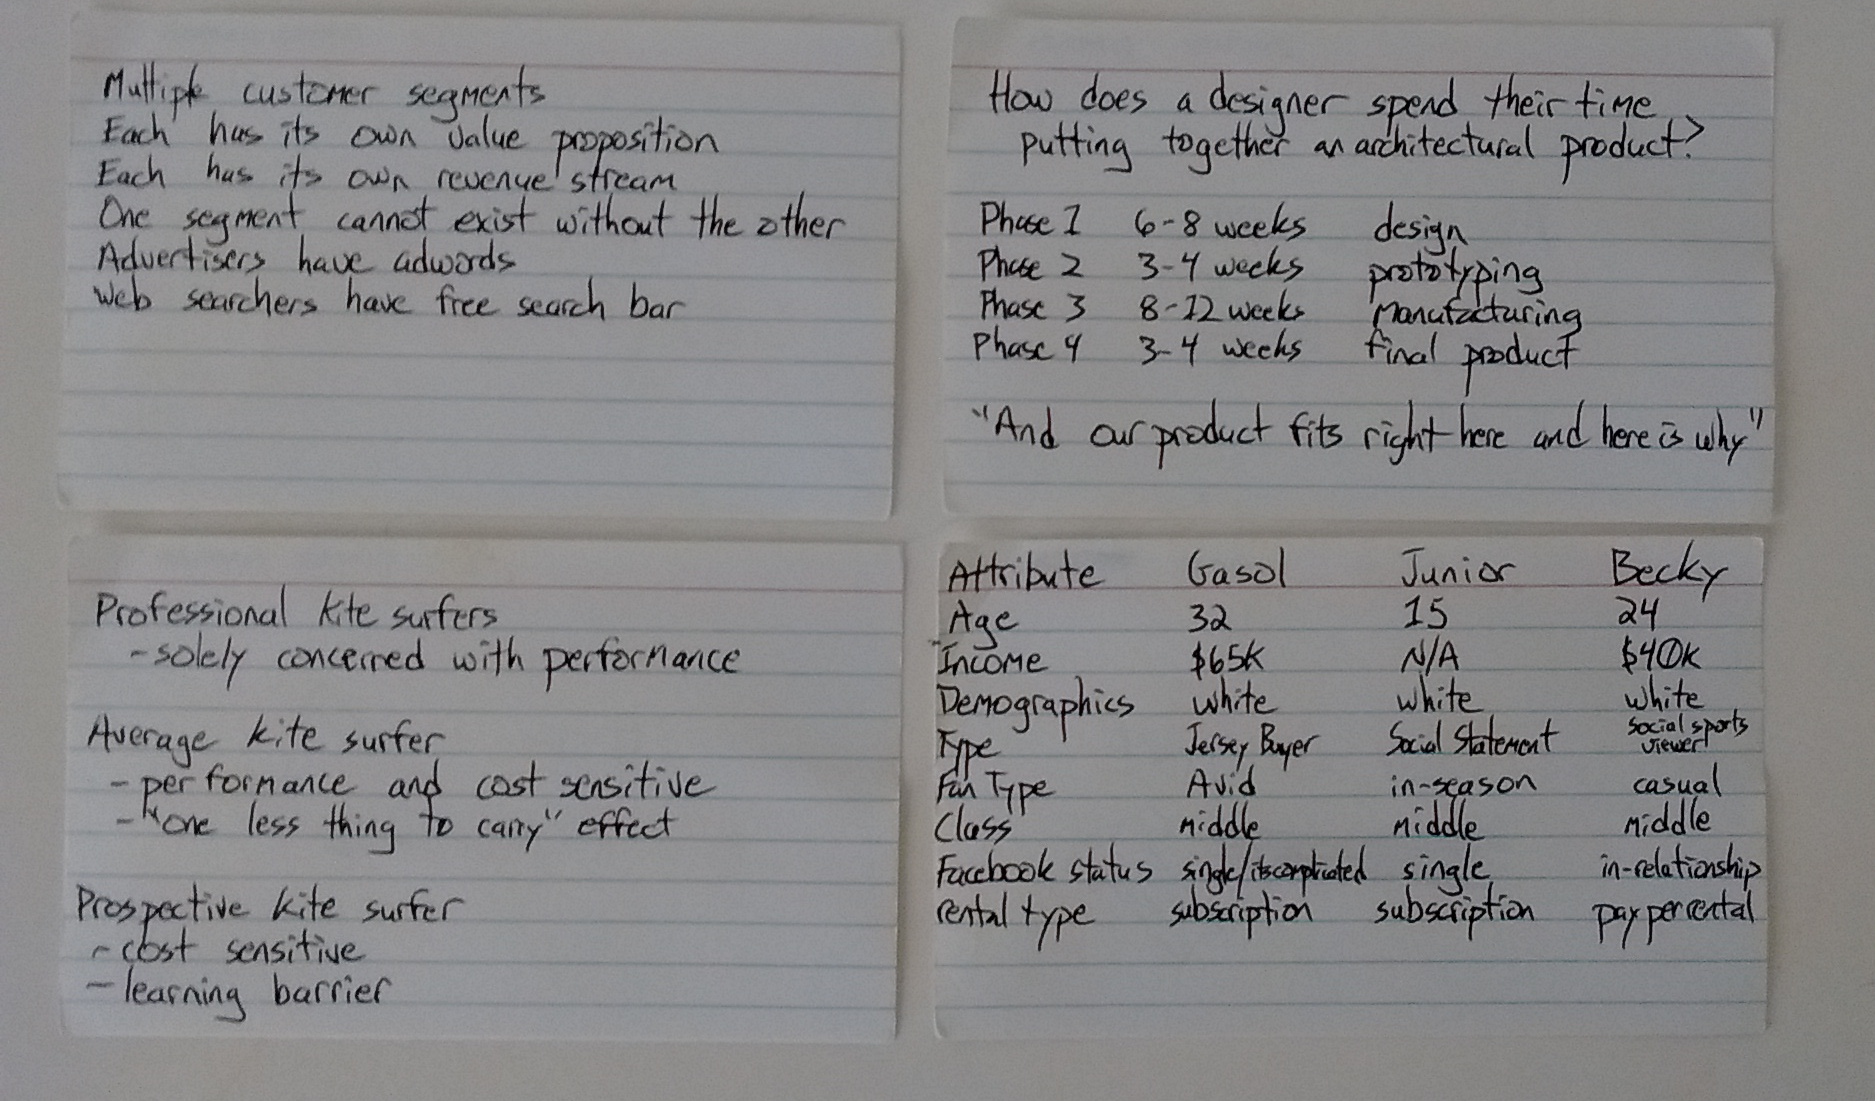 Multiple customer segments
Each has its own value proposition
Each has its own revenue stream
One segment cannot exist without the other
Advertisers have adwords
Web searchers have free search bar
How does a designer spend their time
putting together an architectural product?
Phase 1 6-8 weeks design
Phase 2 3-4 weeks prototyping
Phase 3 8-12 weeks manufacturing
Phase 4 3-4 weeks final product
"And our product fits right here and here is why"
Professional kite surfers
- solely concerned with performance
Average kite surfer
- performance and cost sensitive
- "one less thing to carry" effect
Prospective kite surfer
- cost sensitive
- learning barrier
Attribute Gasol Junior Becky
Age 32 15 24
Income $65K N/A $40K
Demographics white white white
Type Jersey Buyer Social Statement social sports viewer
Fan Type Avid in-season casual
Class middle middle middle
Facebook status single/itscomplicated single in-relationship
rental type subscription subscription pay per rental